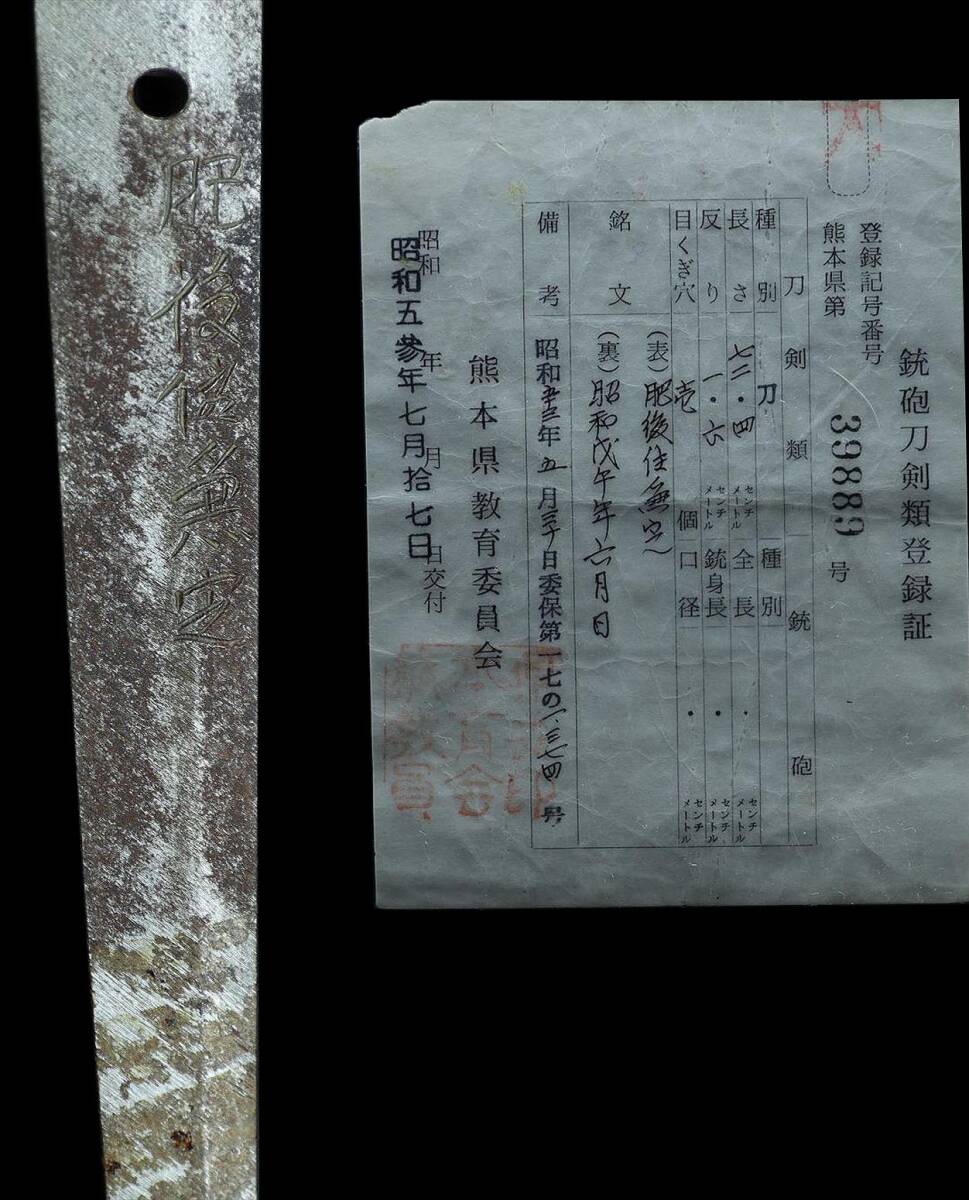 肥後住兼定
銃砲刀剣類登録証
登録記号番号
熊本県第 39889 号
刀剣類 銃砲
種別 刀 種別
長さ 七二・四 センチメートル 全長 ・ センチメートル
反り 一・六 センチメートル 銃身長 ・ センチメートル
目くぎ穴 壱 個 口径 ・ センチメートル
銘文 (表)肥後住兼定
(裏)昭和戊午年六月日
備考 昭和五十三年五月三十日委保第一七の一、三七四号
熊本県教育委員会
昭和 年 月 日交付
昭和五参年七月拾七日